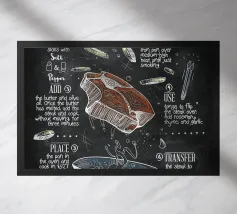 sides with
Salt
&
Pepper
ADD 3
the butter and olive
oil. Once the butter
has melted, add the
steak and cook
without moving for
three minutes
PLACE 5
the pan in
the oven and
cook in
iron pan over
medium-high
heat, until just
smoking
4
USE
tongs to flip
the steak over.
Add rosemary,
thyme, and garlic
6
TRANSFER
the steak to